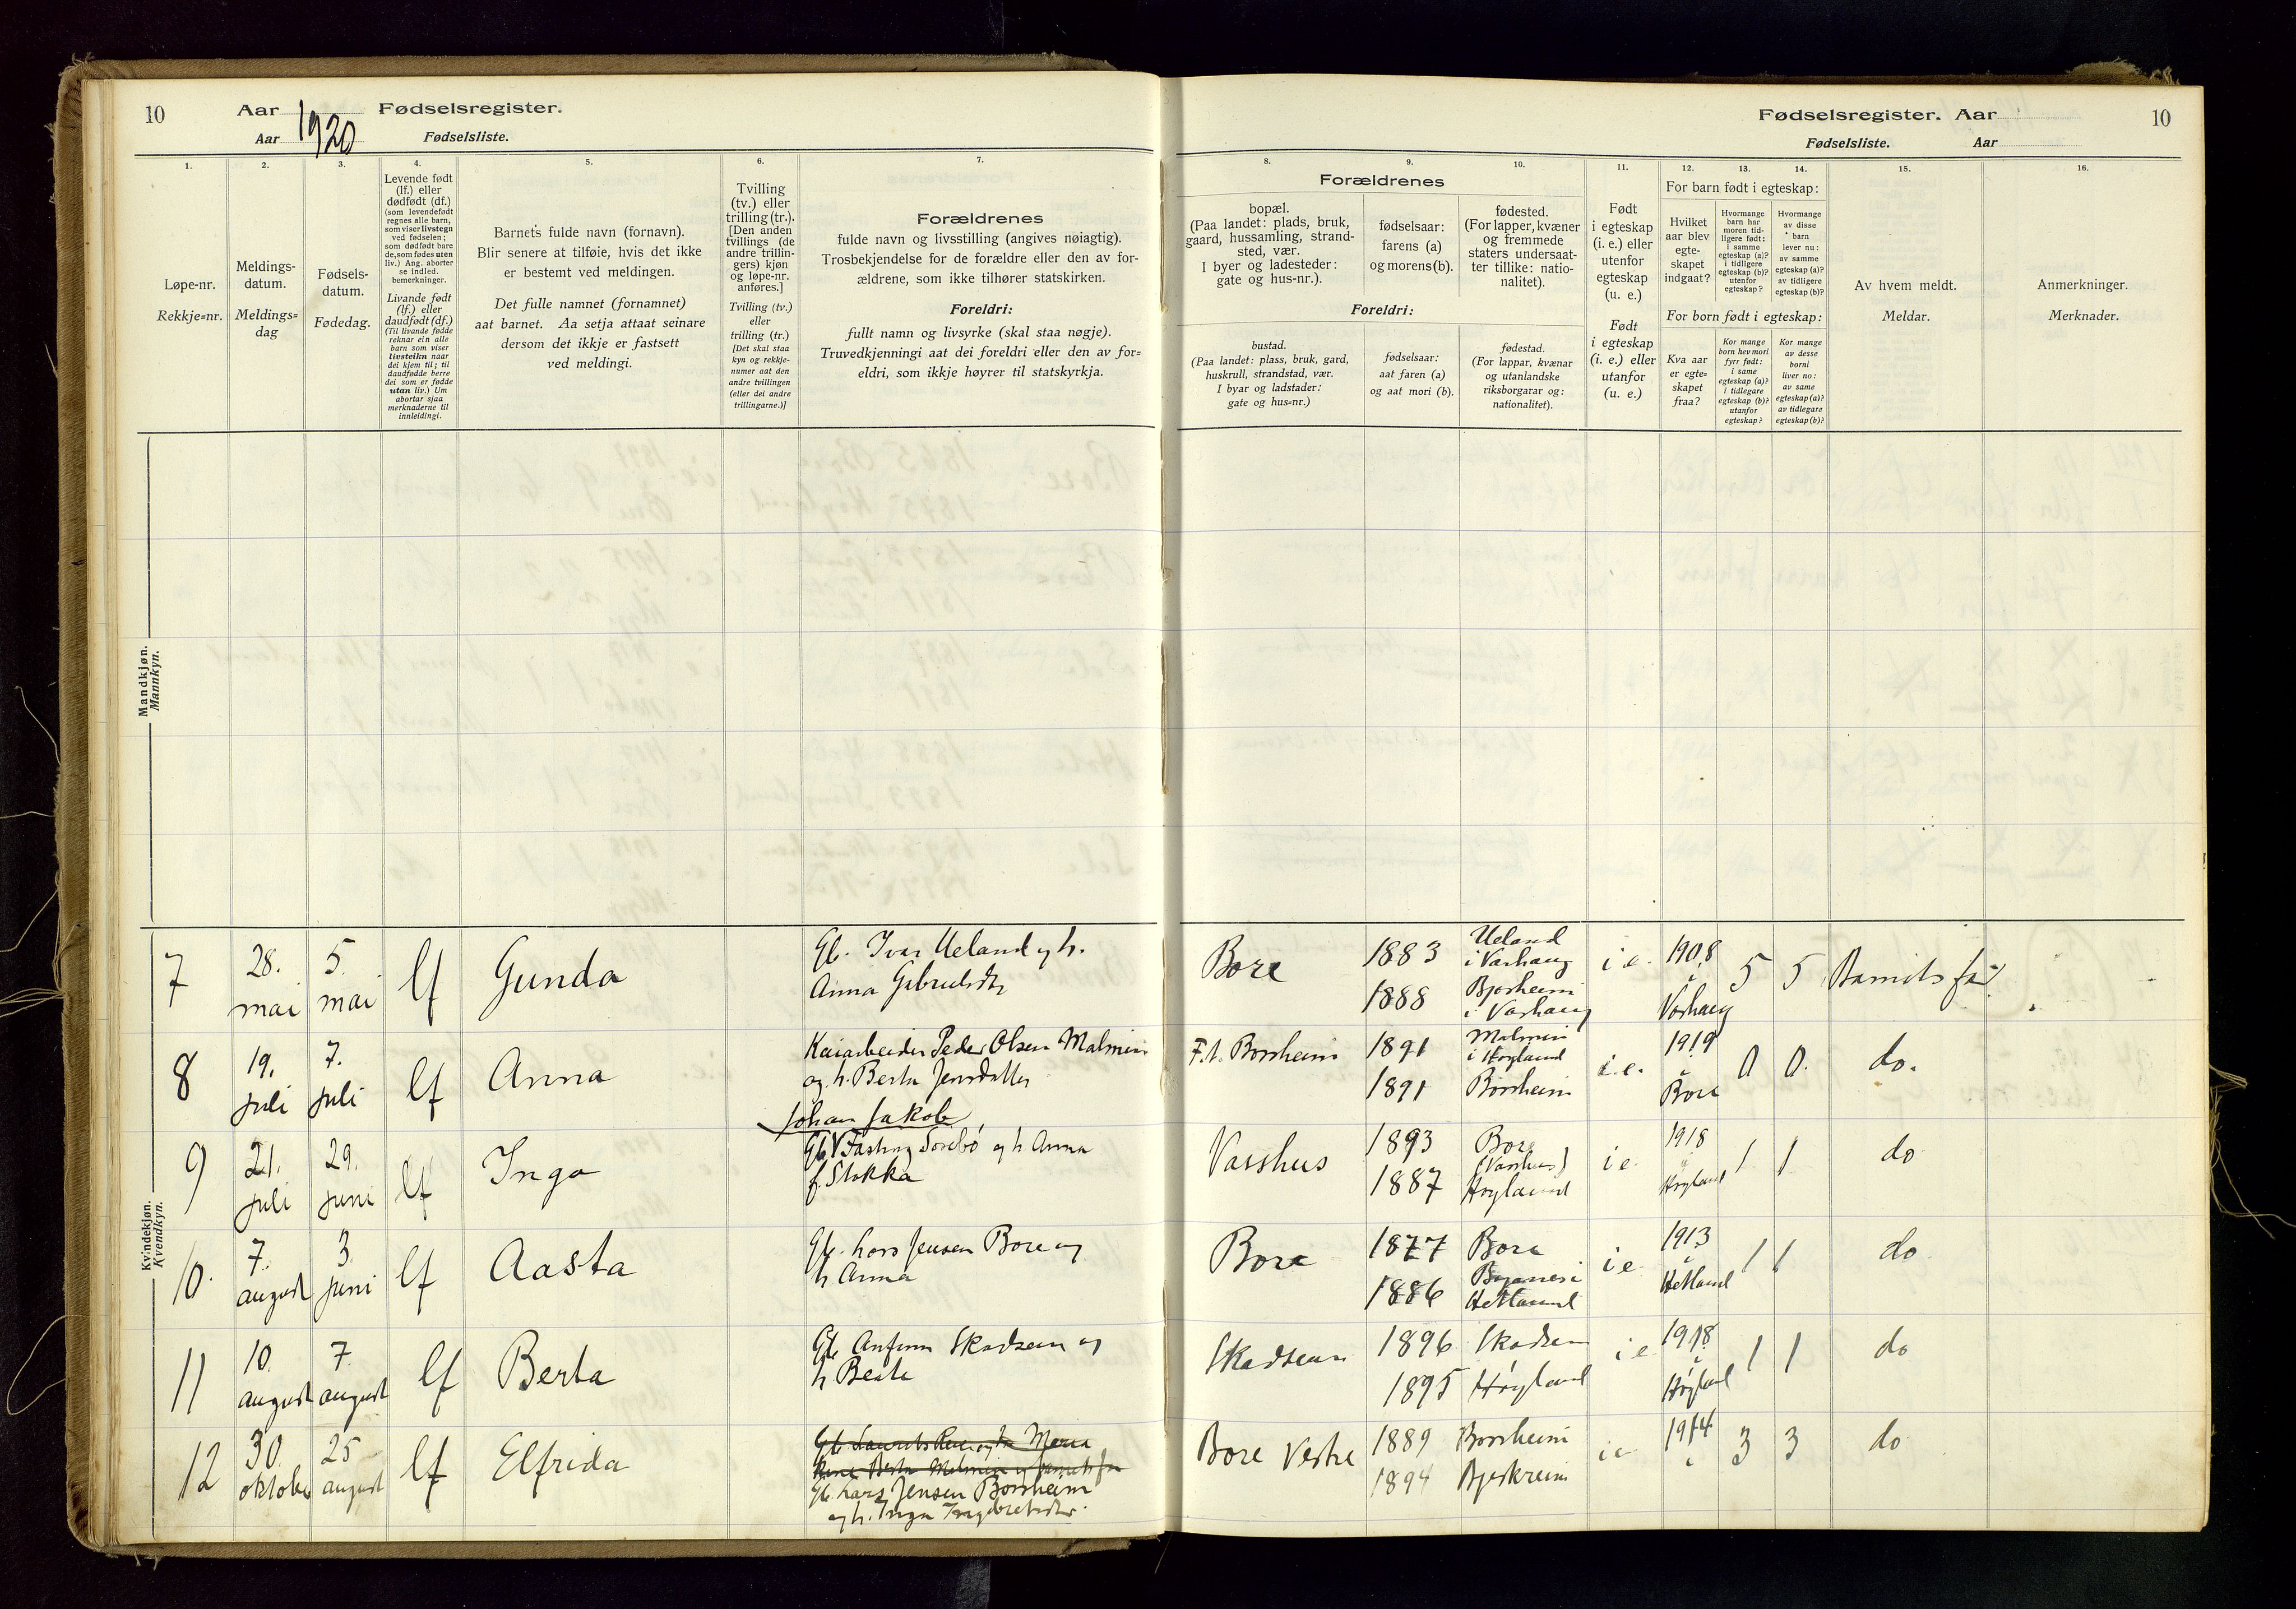 10
Aar 1920 Fødselsregister.
Aar Fødselsliste.
1.
Løpe-nr.
Rekkje=nr.
2.
Meldings-
datum.
Meldings=
dag
3.
Fødsels-
datum.
Fødedag.
4.
Levende født
(lf.) eller
dødfødt (df.)
(som levendefødt
regnes alle barn,
som viser livstegn
ved fødselen;
som dødfødt bare
de, som fødes uten
liv.) Ang. aborter
se indled.
bemerkninger.
Livande født
(lf.) eller
daudfødt (df.)
(Til livande fødde
reknar ein alle
barn som viser
livsteikn naar
dei kjem til; til
daudfødde berre
dei som er fødde
utan liv.) Um
abortar sjaa
merknaderne til
innleidingi.
5.
Barnets fulde navn (fornavn).
Blir senere at tilføie, hvis det ikke
er bestemt ved meldingen.
Det fulle namnet (fornamnet)
aat barnet. Aa setja attaat seinare
dersom det ikkje er fastsett
ved meldingi.
6.
Tvilling
(tv.) eller
trilling (tr.).
[Den anden
tvillings (de
andre trillin-
gers) kjøn
og løpe-nr.
anføres.]
Tvilling (tv.)
eller
trilling (tr.)
[Det skal staa
kyn og rekkje-
numer aat den
andre tvillingen
(eller dei andre
trillingarne.)]
7.
Forældrenes
fulde navn og livsstilling (angives nøiagtig).
Trosbekjendelse for de forældre eller den av for-
ældrene, som ikke tilhører statskirken.
Foreldri:
fullt namn og livsyrke (skal staa nøgje).
Truvedkjenningi aat dei foreldri eller den av for=
eldri, som ikkje høyrer til statskyrkja.
Fødselsregister. Aar 10
Fødselsliste. Aar
Forældrenes
8.
bopæl.
(Paa landet: plads, bruk,
gaard, hussamling, strand-
sted, vær.
I byer og ladesteder:
gate og hus-nr.).
9.
fødselsaar:
farens (a)
og morens (b).
10.
fødested.
(For lapper, kvæner
og fremmede
staters undersaat-
ter tillike: natio-
nalitet).
Foreldri:
bustad.
(Paa landet: plass, bruk, gard,
huskrull, strandstad, vær.
I byar og ladstader:
gate og hus=nr.)
fødselsaar:
aat faren (a)
og aat mori (b).
fødestad.
(For lappar, kvænar
og utanlandske
riksborgarar og:
nationalitet).
11.
Født
i egteskap
(i. e.) eller
utenfor
egteskap
(u. e.)
Født
i egteskap
(i. e.) eller
utanfor
(u. e.)
For barn født i egteskap:
12.
Hvilket
aar blev
egte-
skapet
indgaat?
13.
Hvormange
barn har
moren tid-
ligere født:
i samme
egteskap (a)?
i tidligere
egteskap (b)?
utenfor
egteskap?
14.
Hvormange
av disse
barn
lever nu:
av samme
egteskap (a)?
av tidligere
egteskap (b)?
For born født i egteskap:
Kva aar
er egte=
skapet
fraa?
Kor mange
born hev mori
fyrr født:
i same
egteskap (a)?
i tidlegare
egteskap (b)?
utanfor
egteskap?
Kor mange
av desse
borni
liver no:
av same
egteskap (a)?
av tidlegare
egteskap (b)?
15.
Av hvem meldt.
Meldar.
16.
Anmerkninger.
Merknader.
Mandkjøn.
Mannkyn.
Kvindekjøn.
Kvendkyn.
7 28. mai 5. mai lf Gunda
Gb. Ivar Ueland og h.
Anna
Bore 1883 Ueland i Varhaug
1888 i Varhaug
i e. 1908 i Varhaug 5 5 Barnets far
8 19. juli 7. juli lf Anna
Kaiarbeider Peder Olsen Malmin
og h. Berta Jensdatter
F. t. Borsheim 1891 Malmin i Høyland
1891 Borsheim
i. e. 1919 i Bore 0 0 do.
9 21. juli 29. juni lf Inga
Johan Jakob
Gb. Fasting Sørebø og h Anna
f. Stokka
Vasshus 1893 Bore (Vasshus)
1887 Høyland
i e. 1918 i Høyland 1 1 do
10. 7. august 3. juni lf Aasta
Gb. Lars Jensen Bore og
h Anna
Bore 1877 Bore
1886 Hetland
i e 1913 i Hetland 1 1 do
11 10. august 7. august lf Berta
Gb. Anfinn Skadsem og
h Beate
Skadsem 1896 Skadsem
1895 Høyland
i e 1918 i Høyland 1 1 do
12 30. oktober 25 august lf Elfrida
Gb. Lars Jensen Borsheim
og h. Inga
Bore Vestre 1889 Borsheim
1894 Bjerkreim
i e 1914 i 3 3 do